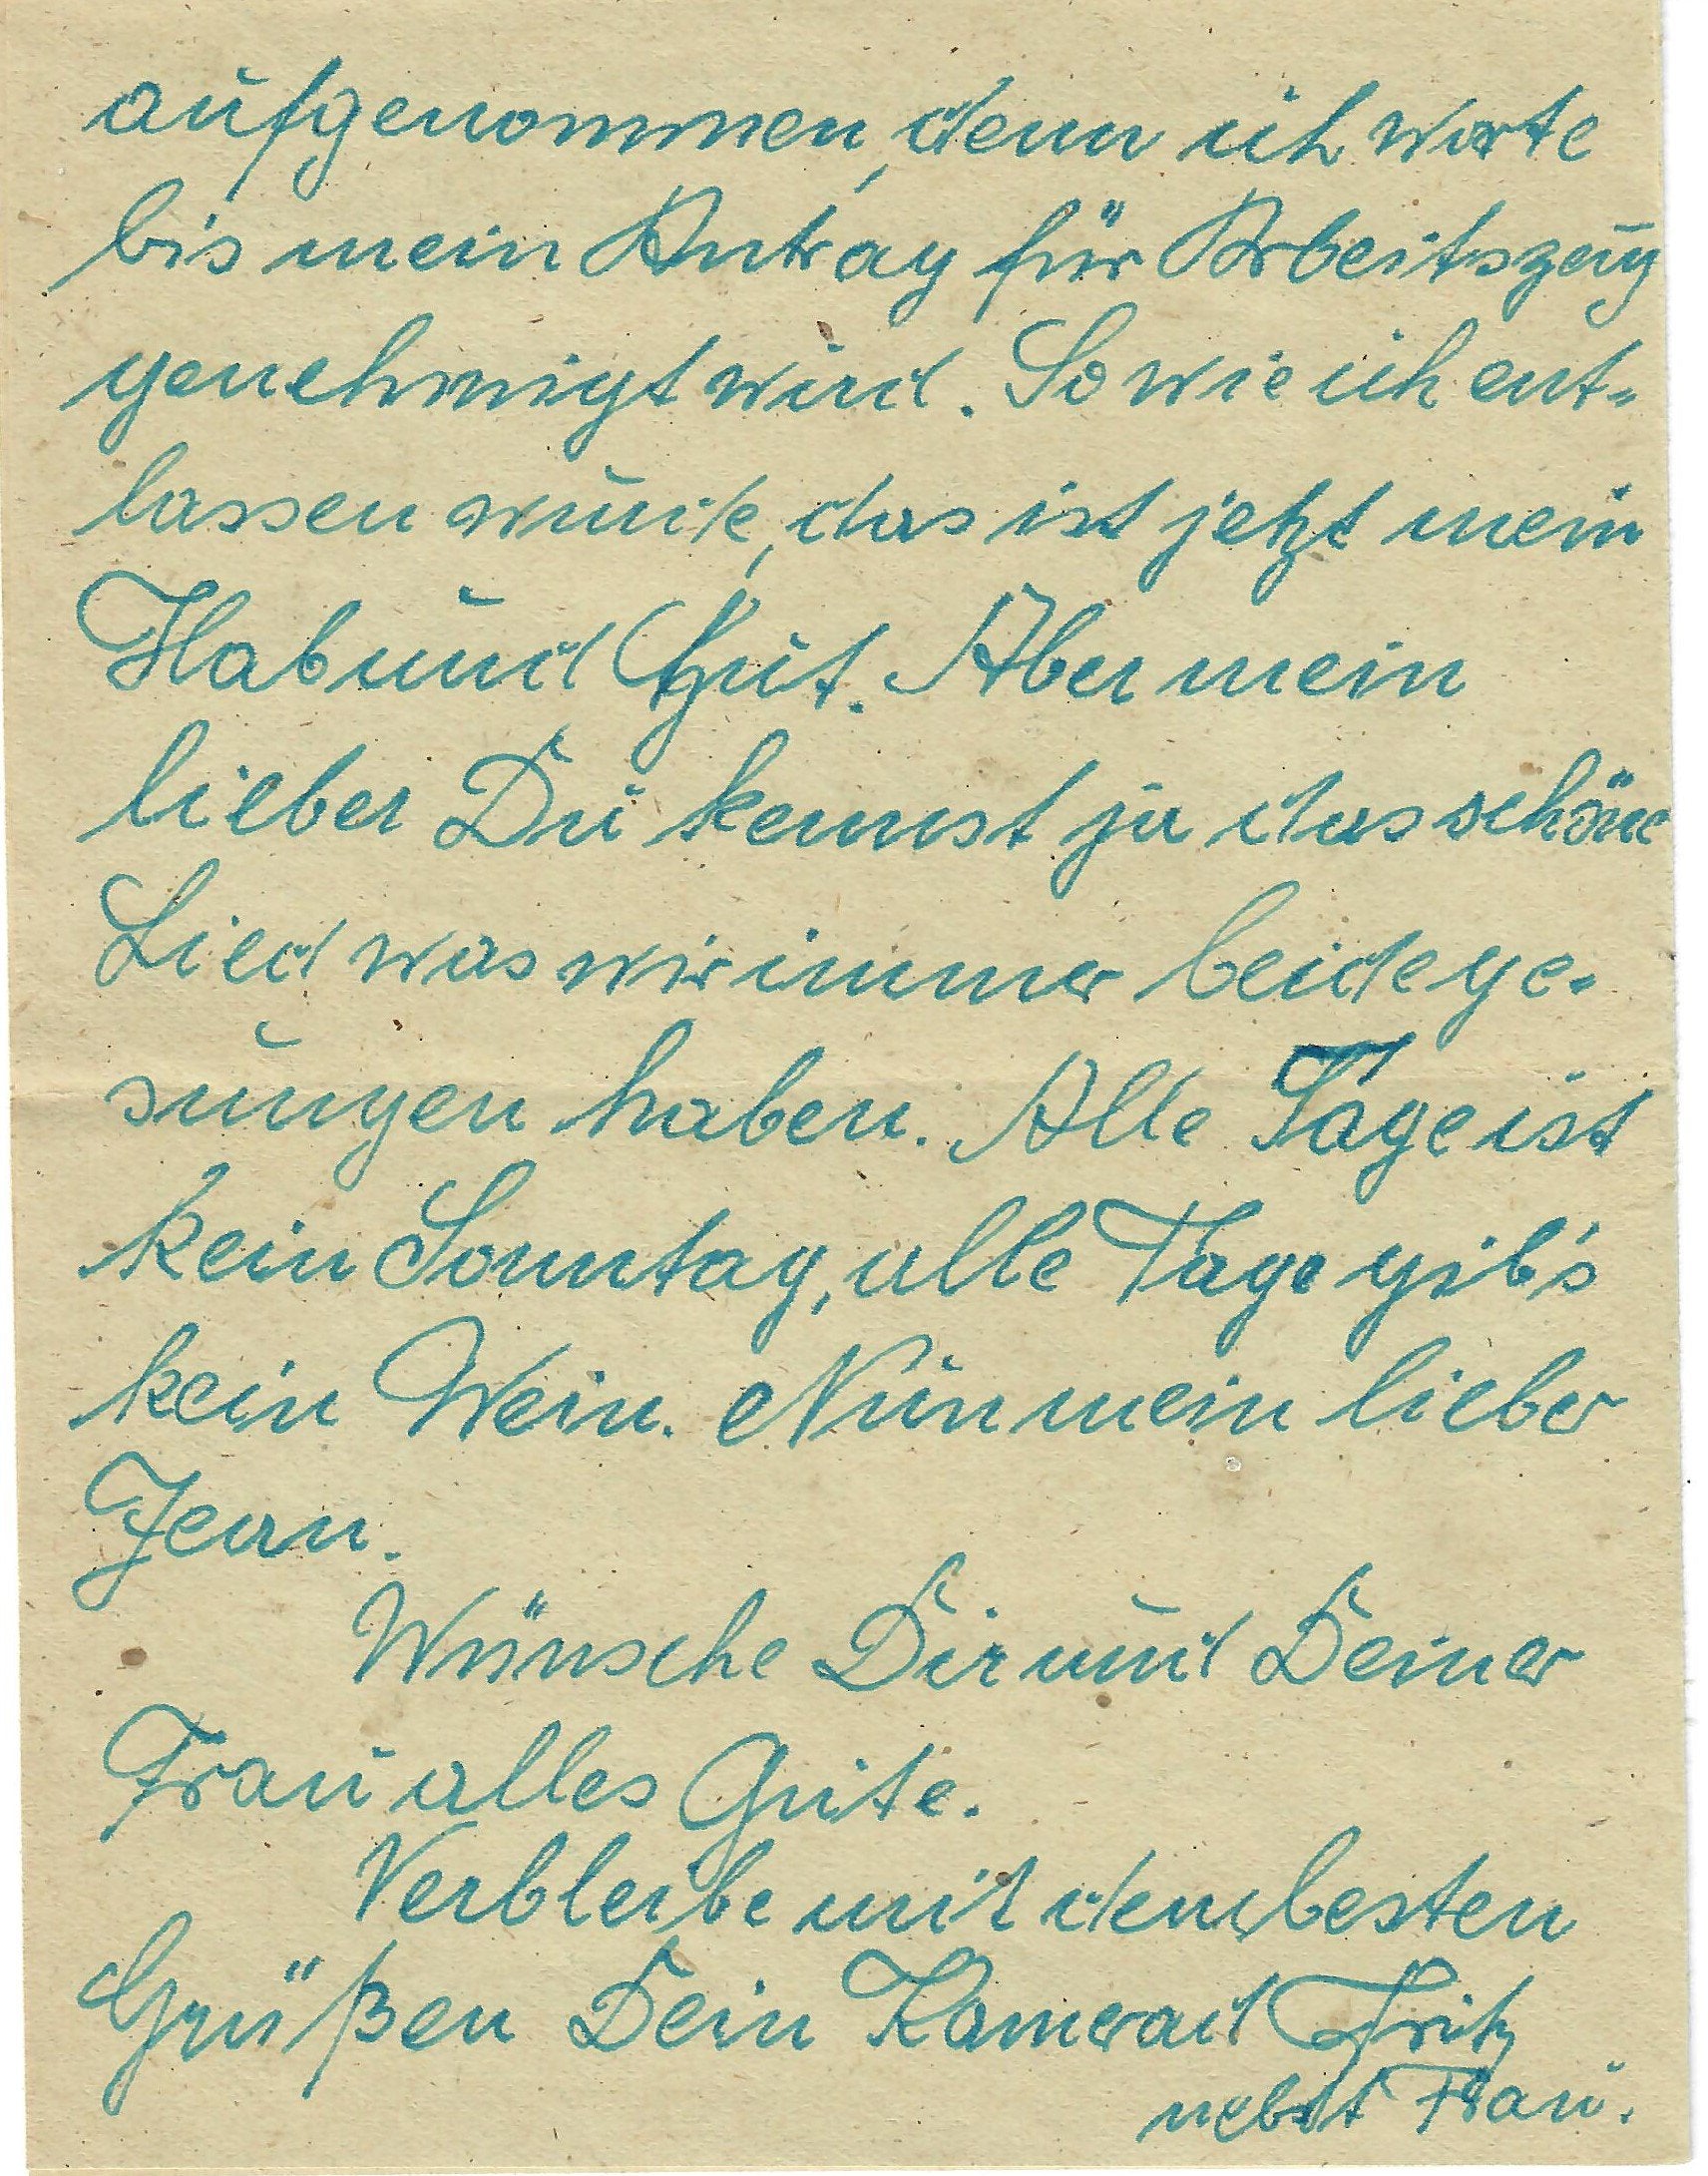 aufgenommen, denn ich warte
bis mein Antrag für Arbeitszeug
genehmigt wird. So wie ich ent=
lassen wurde, das ist jetzt mein
Hab und Gut. Aber mein
lieber Du kennst ja das schöne
Lied was wir immer beide ge=
sungen haben. Alle Tage ist
kein Sonntag, alle Tage gib's
kein Wein. Nun mein lieber
Jean.
Wünsche Dir und Deiner
Frau alles Gute.
Verbleibe mit den besten
Grüßen Dein Kamerad Fritz
nebst Frau.